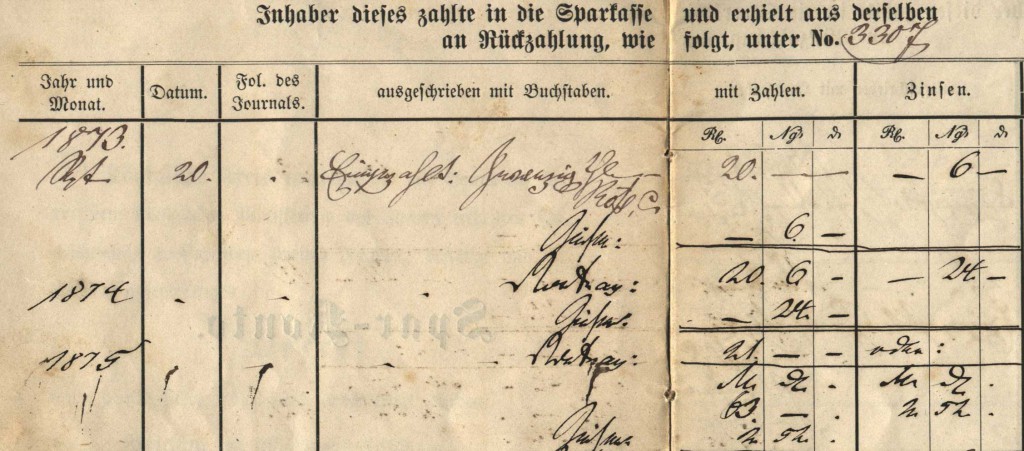 Inhaber dieses zahlte in die Sparkasse und erhielt aus derselben
an Rückzahlung, wie folgt, unter No. 3307
Jahr und Monat. Datum. Fol. des Journals. ausgeschrieben mit Buchstaben. mit Zahlen. Zinsen.
Rℓ. Ngr ₰ Rℓ. Ngr ₰
1873.
Spt 20. . Eingezahlt: 20. — — — 6 —
Zinsen: — 6. —
20. 6 - — 24 -
1874 - - . Zinsen. — 24. -
1875 - - 21. — - oder:
63 — .
Zinsen
Spar-Konto.